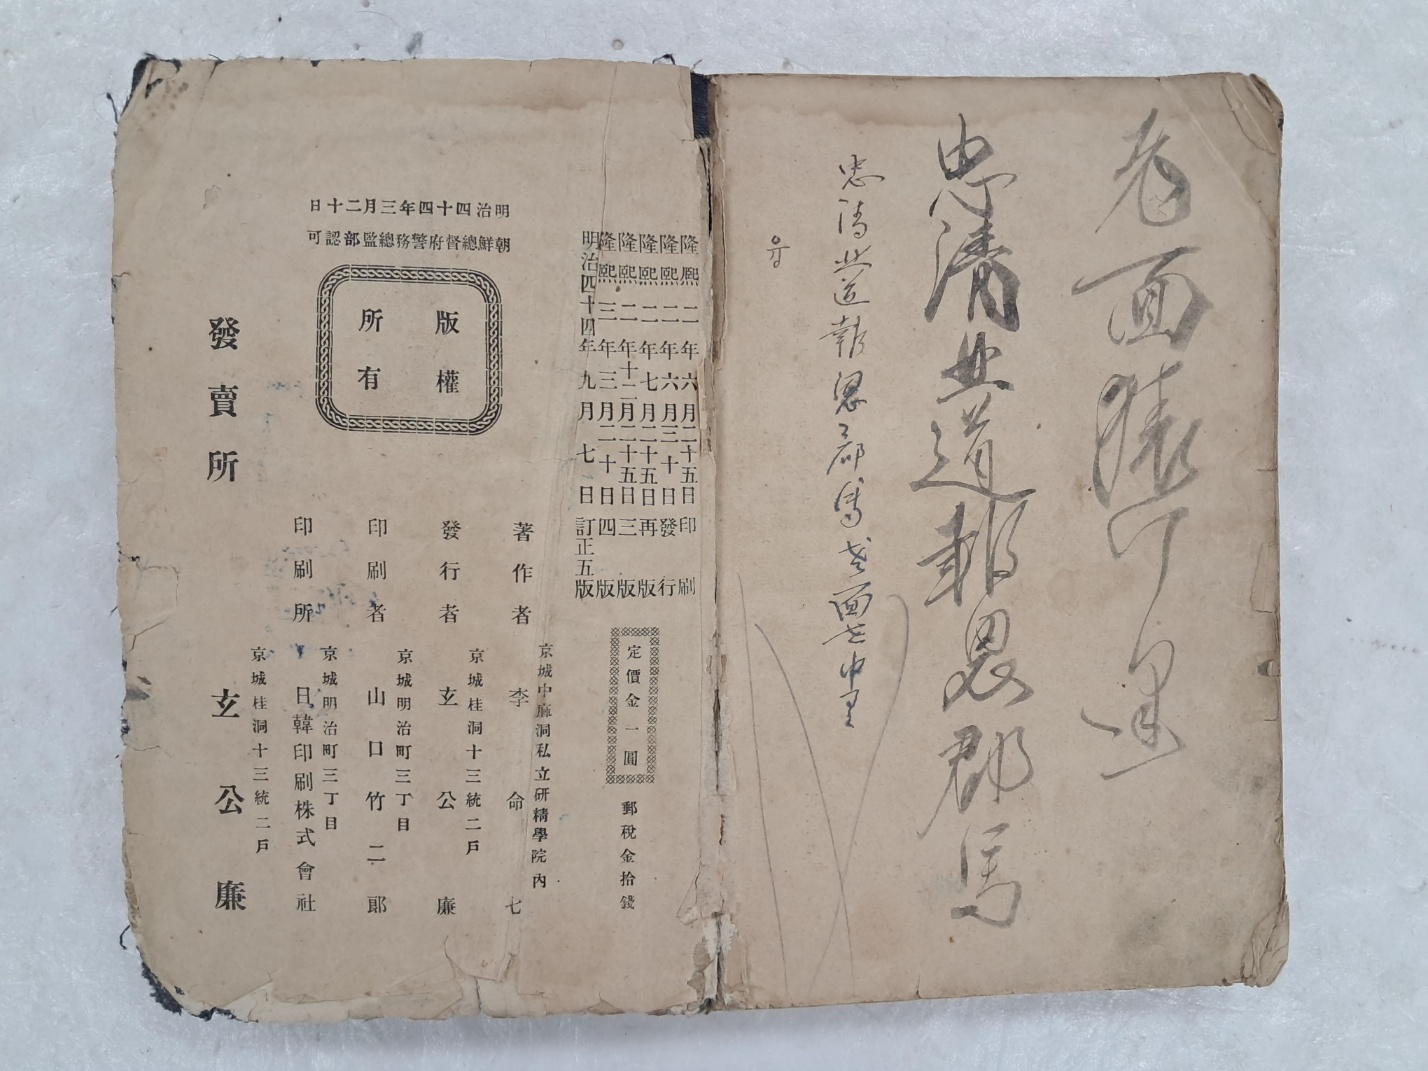 老面猿丁里
忠清北道報恩郡馬
忠清北道報恩郡馬老面
웅
隆熙二年六月二十五日印刷
隆熙二年六月三十日發行
隆熙二年七月二十五日再版
隆熙二年十二月二十五日三版
隆熙三年三月二十日四版
明治四十四年九月七日訂正五版
定價金一圓
郵稅金拾錢
明治四十四年三月二十日
朝鮮總督府警務總監部認可
版權
所有
京城中麻洞私立研精學院內
著作者 李命七
京城桂洞十三統二戶
發行者 玄公廉
京城明治町三丁目
印刷者 山口竹二郎
京城明治町三丁目
印刷所 日韓印刷株式會社
京城桂洞十三統二戶
發賣所 玄公廉